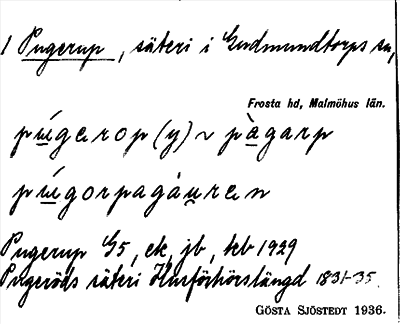 1 Pugerup, säteri i Gudmundtorps sn,
Frosta hd, Malmöhus län.
púgerop (y) ~ pàgarp
púgorpagáuren
Pugerup G5, ek, jb, teb 1929
Pugeröds säteri Husförhörslängd 1831-35.
GÖSTA SJÖSTEDT 1936.